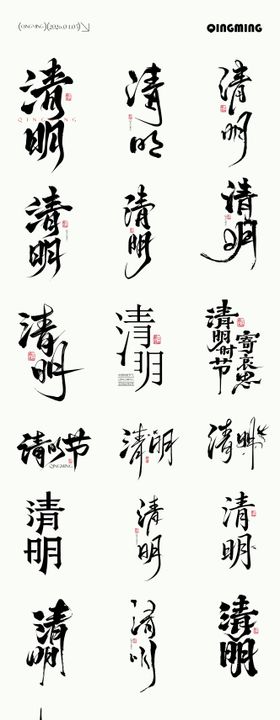 QINGMING
清明
QINGMING
清明
清明
清明
清明
清明
清明
清明
清明时节
寄哀思
清明节
QINGMING
清明
清明
清明
清明
清明
清明
清明
清明